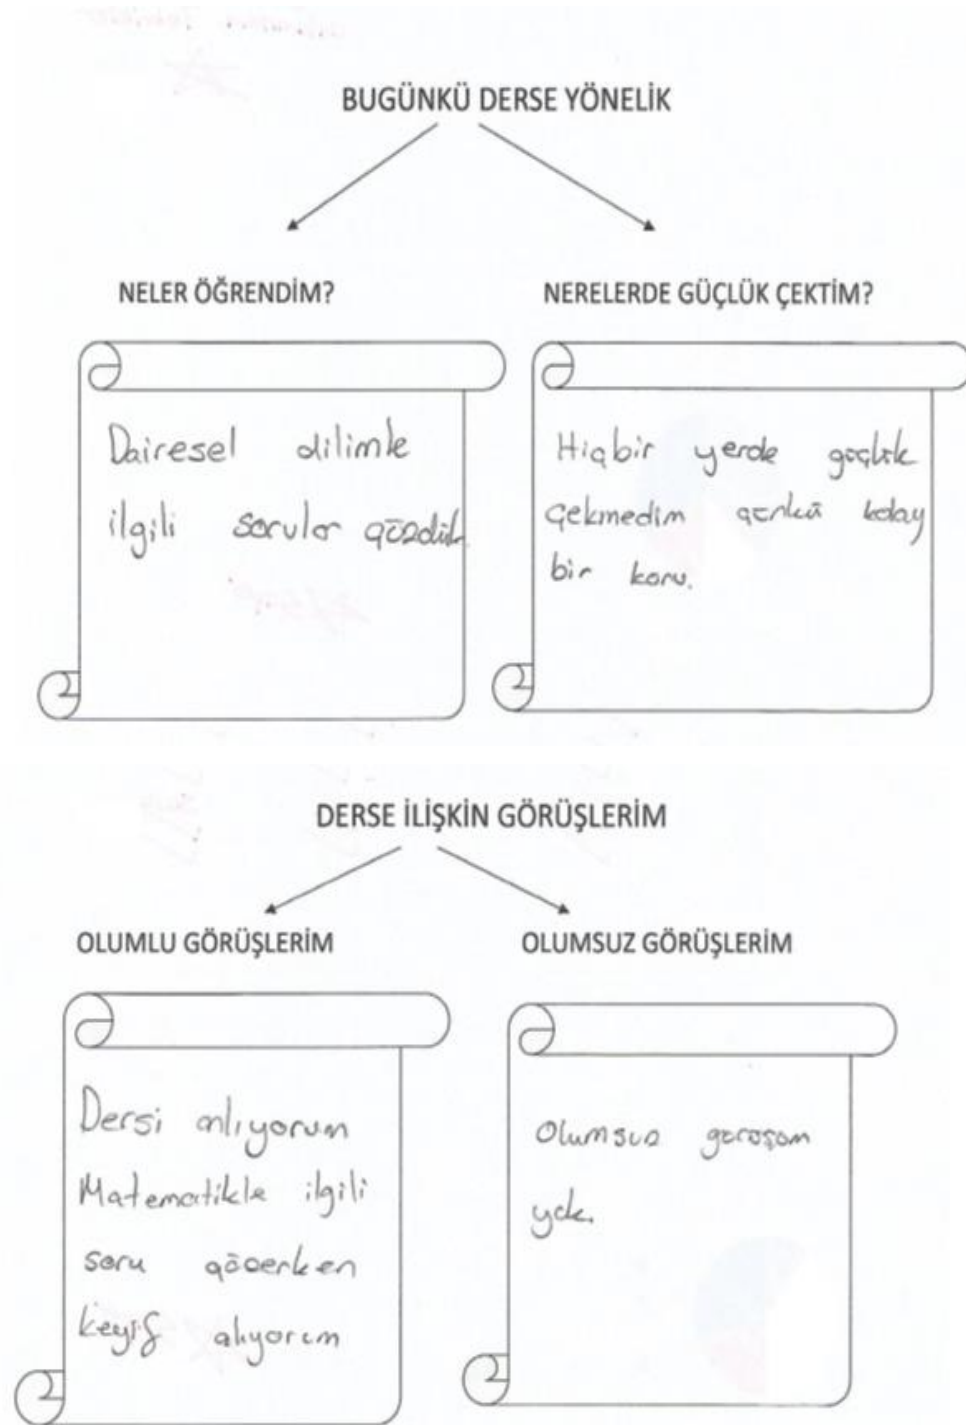 BUGÜNKÜ DERSE YÖNELİK
NELER ÖĞRENDİM?
Dairesel dilimle
ilgili sorular çözdük
NERELERDE GÜÇLÜK ÇEKTİM?
Hiçbir yerde güçlük
çekmedim çünkü kolay
bir konu.
DERSE İLİŞKİN GÖRÜŞLERİM
OLUMLU GÖRÜŞLERİM
Dersi anlıyorum
Matematikle ilgili
soru çözerken
keyif alıyorum
OLUMSUZ GÖRÜŞLERİM
Olumsuz görüşüm
yok.